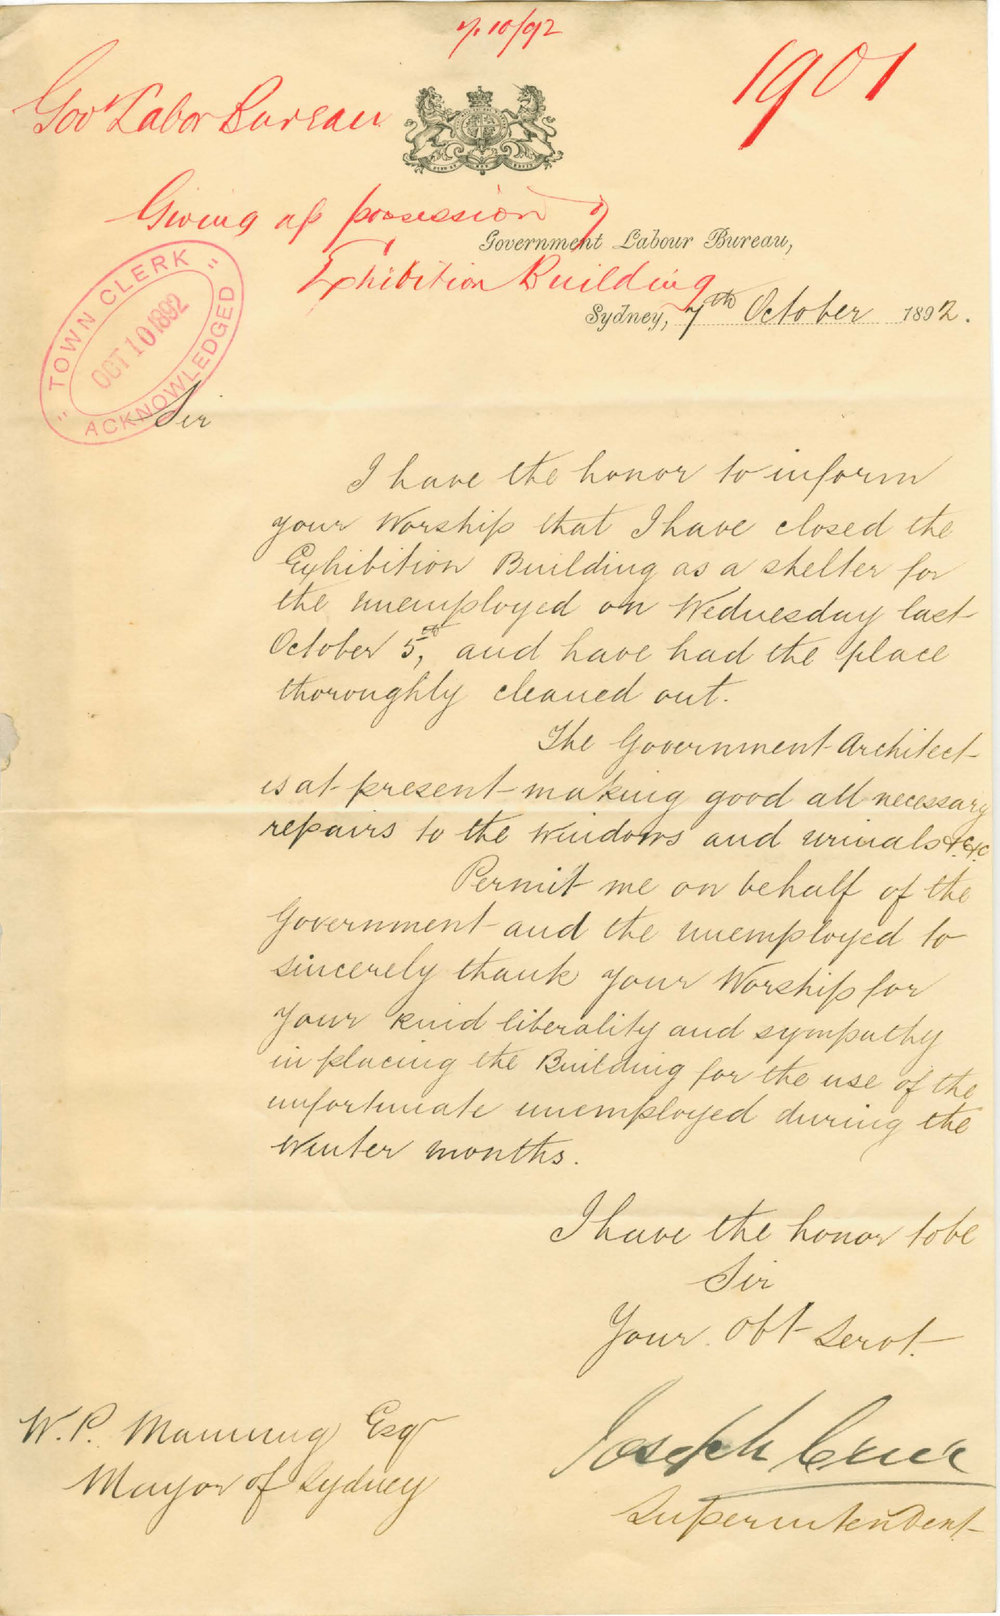 7/10/92
1901
Gov^t Labor Bureau
Giving up possession of
Exhibition Building
Government Labour Bureau,
Sydney, 7th October 1892.
"TOWN CLERK"
OCT 10 1892
ACKNOWLEDGED
Sir
I have the honor to inform
your Worship that I have closed the
Exhibition Building as a shelter for
the unemployed on Wednesday last
October 5th, and have had the place
thoroughly cleaned out.
The Government Architect
is at present making good all necessary
repairs to the windows and urinals &c &c
Permit me on behalf of the
Government and the unemployed to
sincerely thank your Worship for
your kind liberality and sympathy
in placing the Building for the use of the
unfortunate unemployed during the
Winter months.
I have the honor to be
Sir
Your Obt Servt.
Joseph Creer
Superintendent
W. P. Manning Esqr
Mayor of Sydney